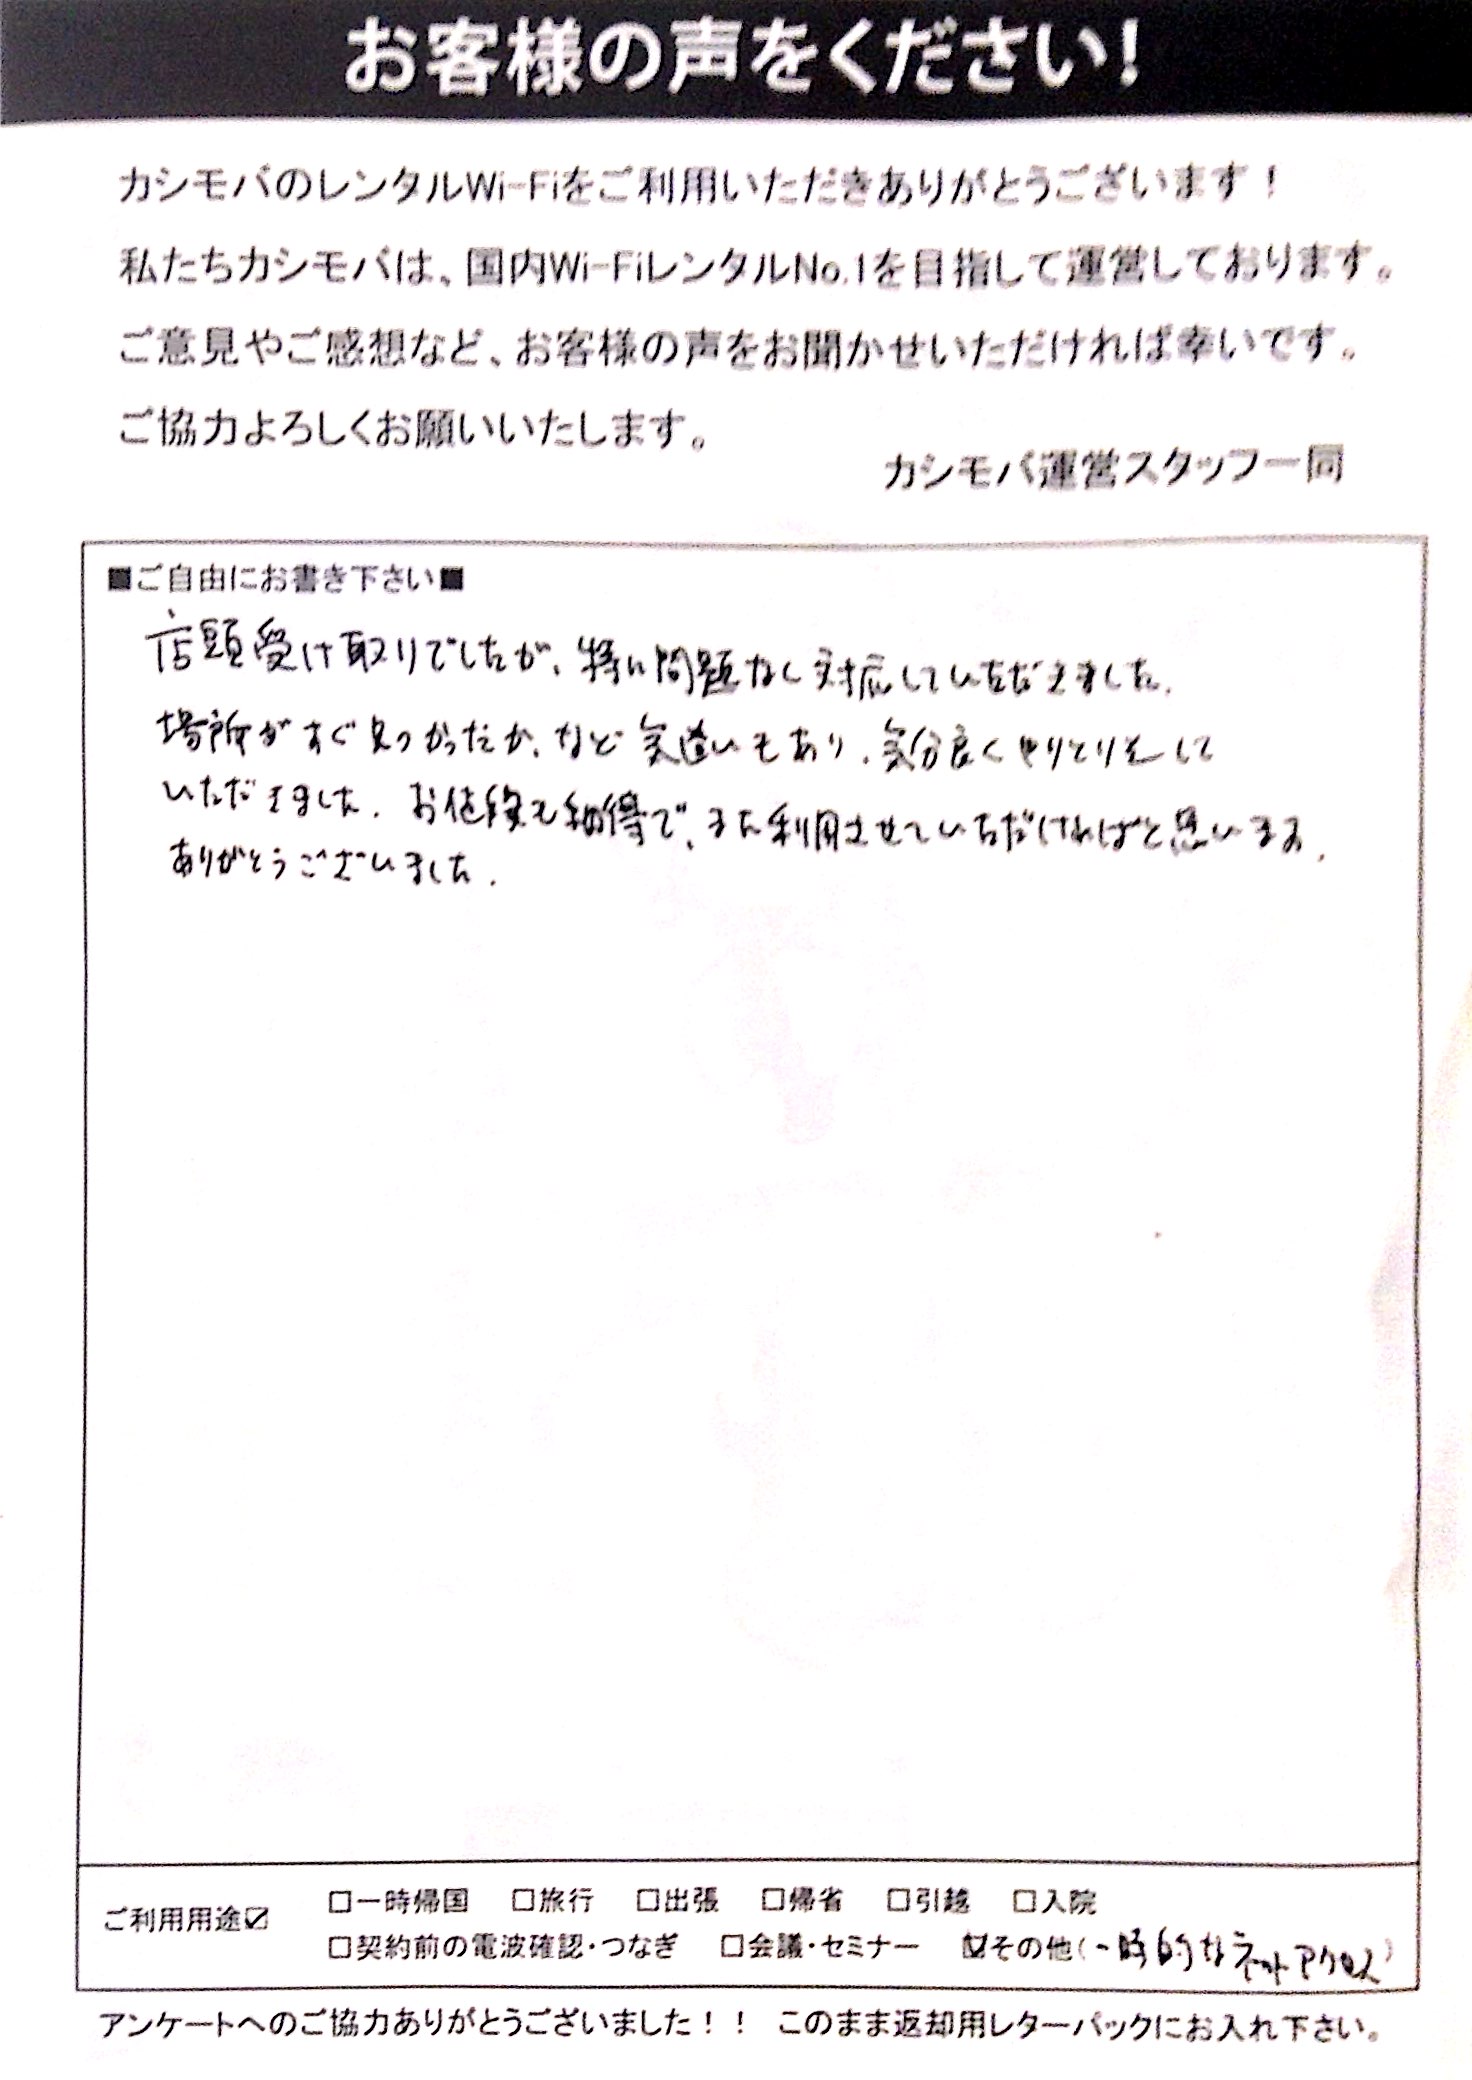 お客様の声をください!
カシモバのレンタルWi-Fiをご利用いただきありがとうございます!
私たちカシモバは、国内Wi-FiレンタルNo.1を目指して運営しております。
ご意見やご感想など、お客様の声をお聞かせいただければ幸いです。
ご協力よろしくお願いいたします。
カシモバ運営スタッフ一同
■ご自由にお書き下さい■
店頭受け取りでしたが、特に問題なし対応していただきました。
場所がすぐ見つかったか、など気遣いもあり、気分良くやりとりをして
いただきました。お値段も納得で、また利用させていただければと思います。
ありがとうございました。
ご利用用途☑ □一時帰国 □旅行 □出張 □帰省 □引越 □入院
□契約前の電波確認・つなぎ □会議・セミナー ☑その他(一時的なネットアクセス)
アンケートへのご協力ありがとうございました!! このまま返却用レターパックにお入れ下さい。